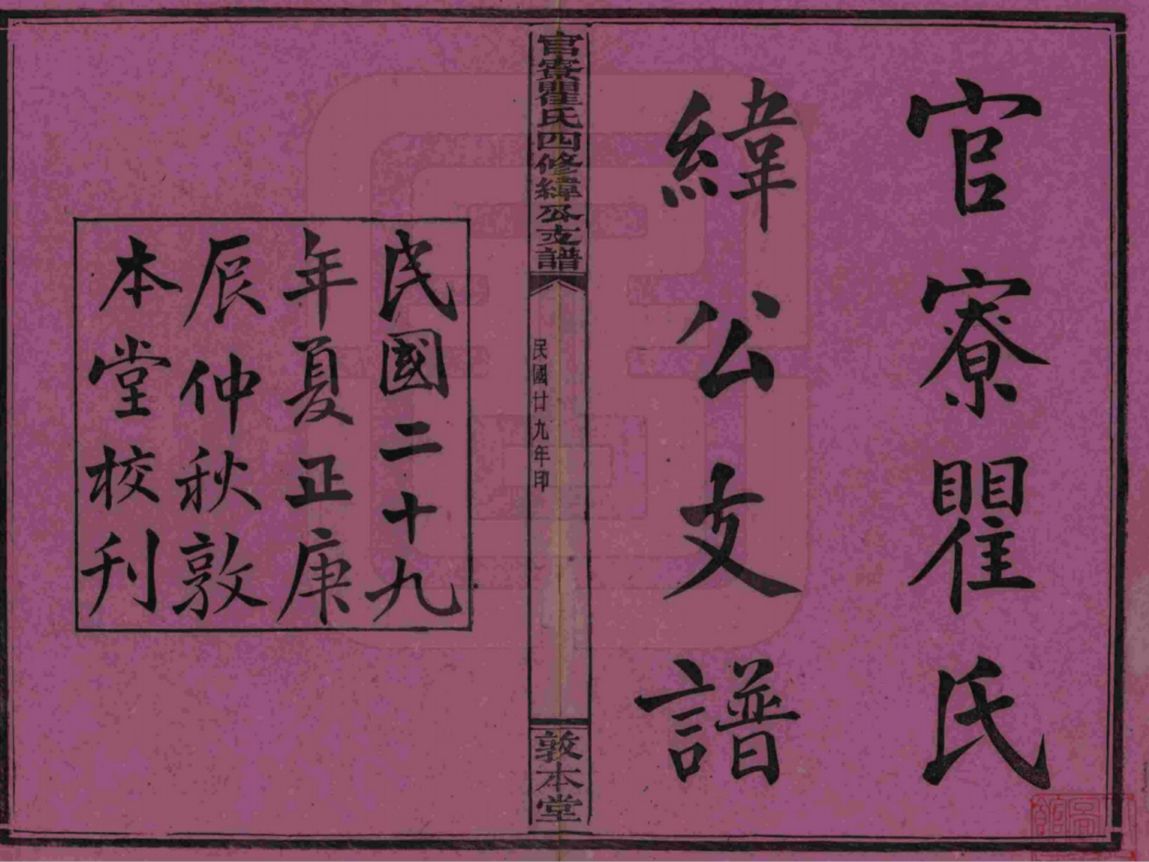 官寮瞿氏
緯公支譜
官寮瞿氏四修緯公支譜
民國廿九年印
敦本堂
民國二十九
年夏正庚
辰仲秋敦
本堂校刋